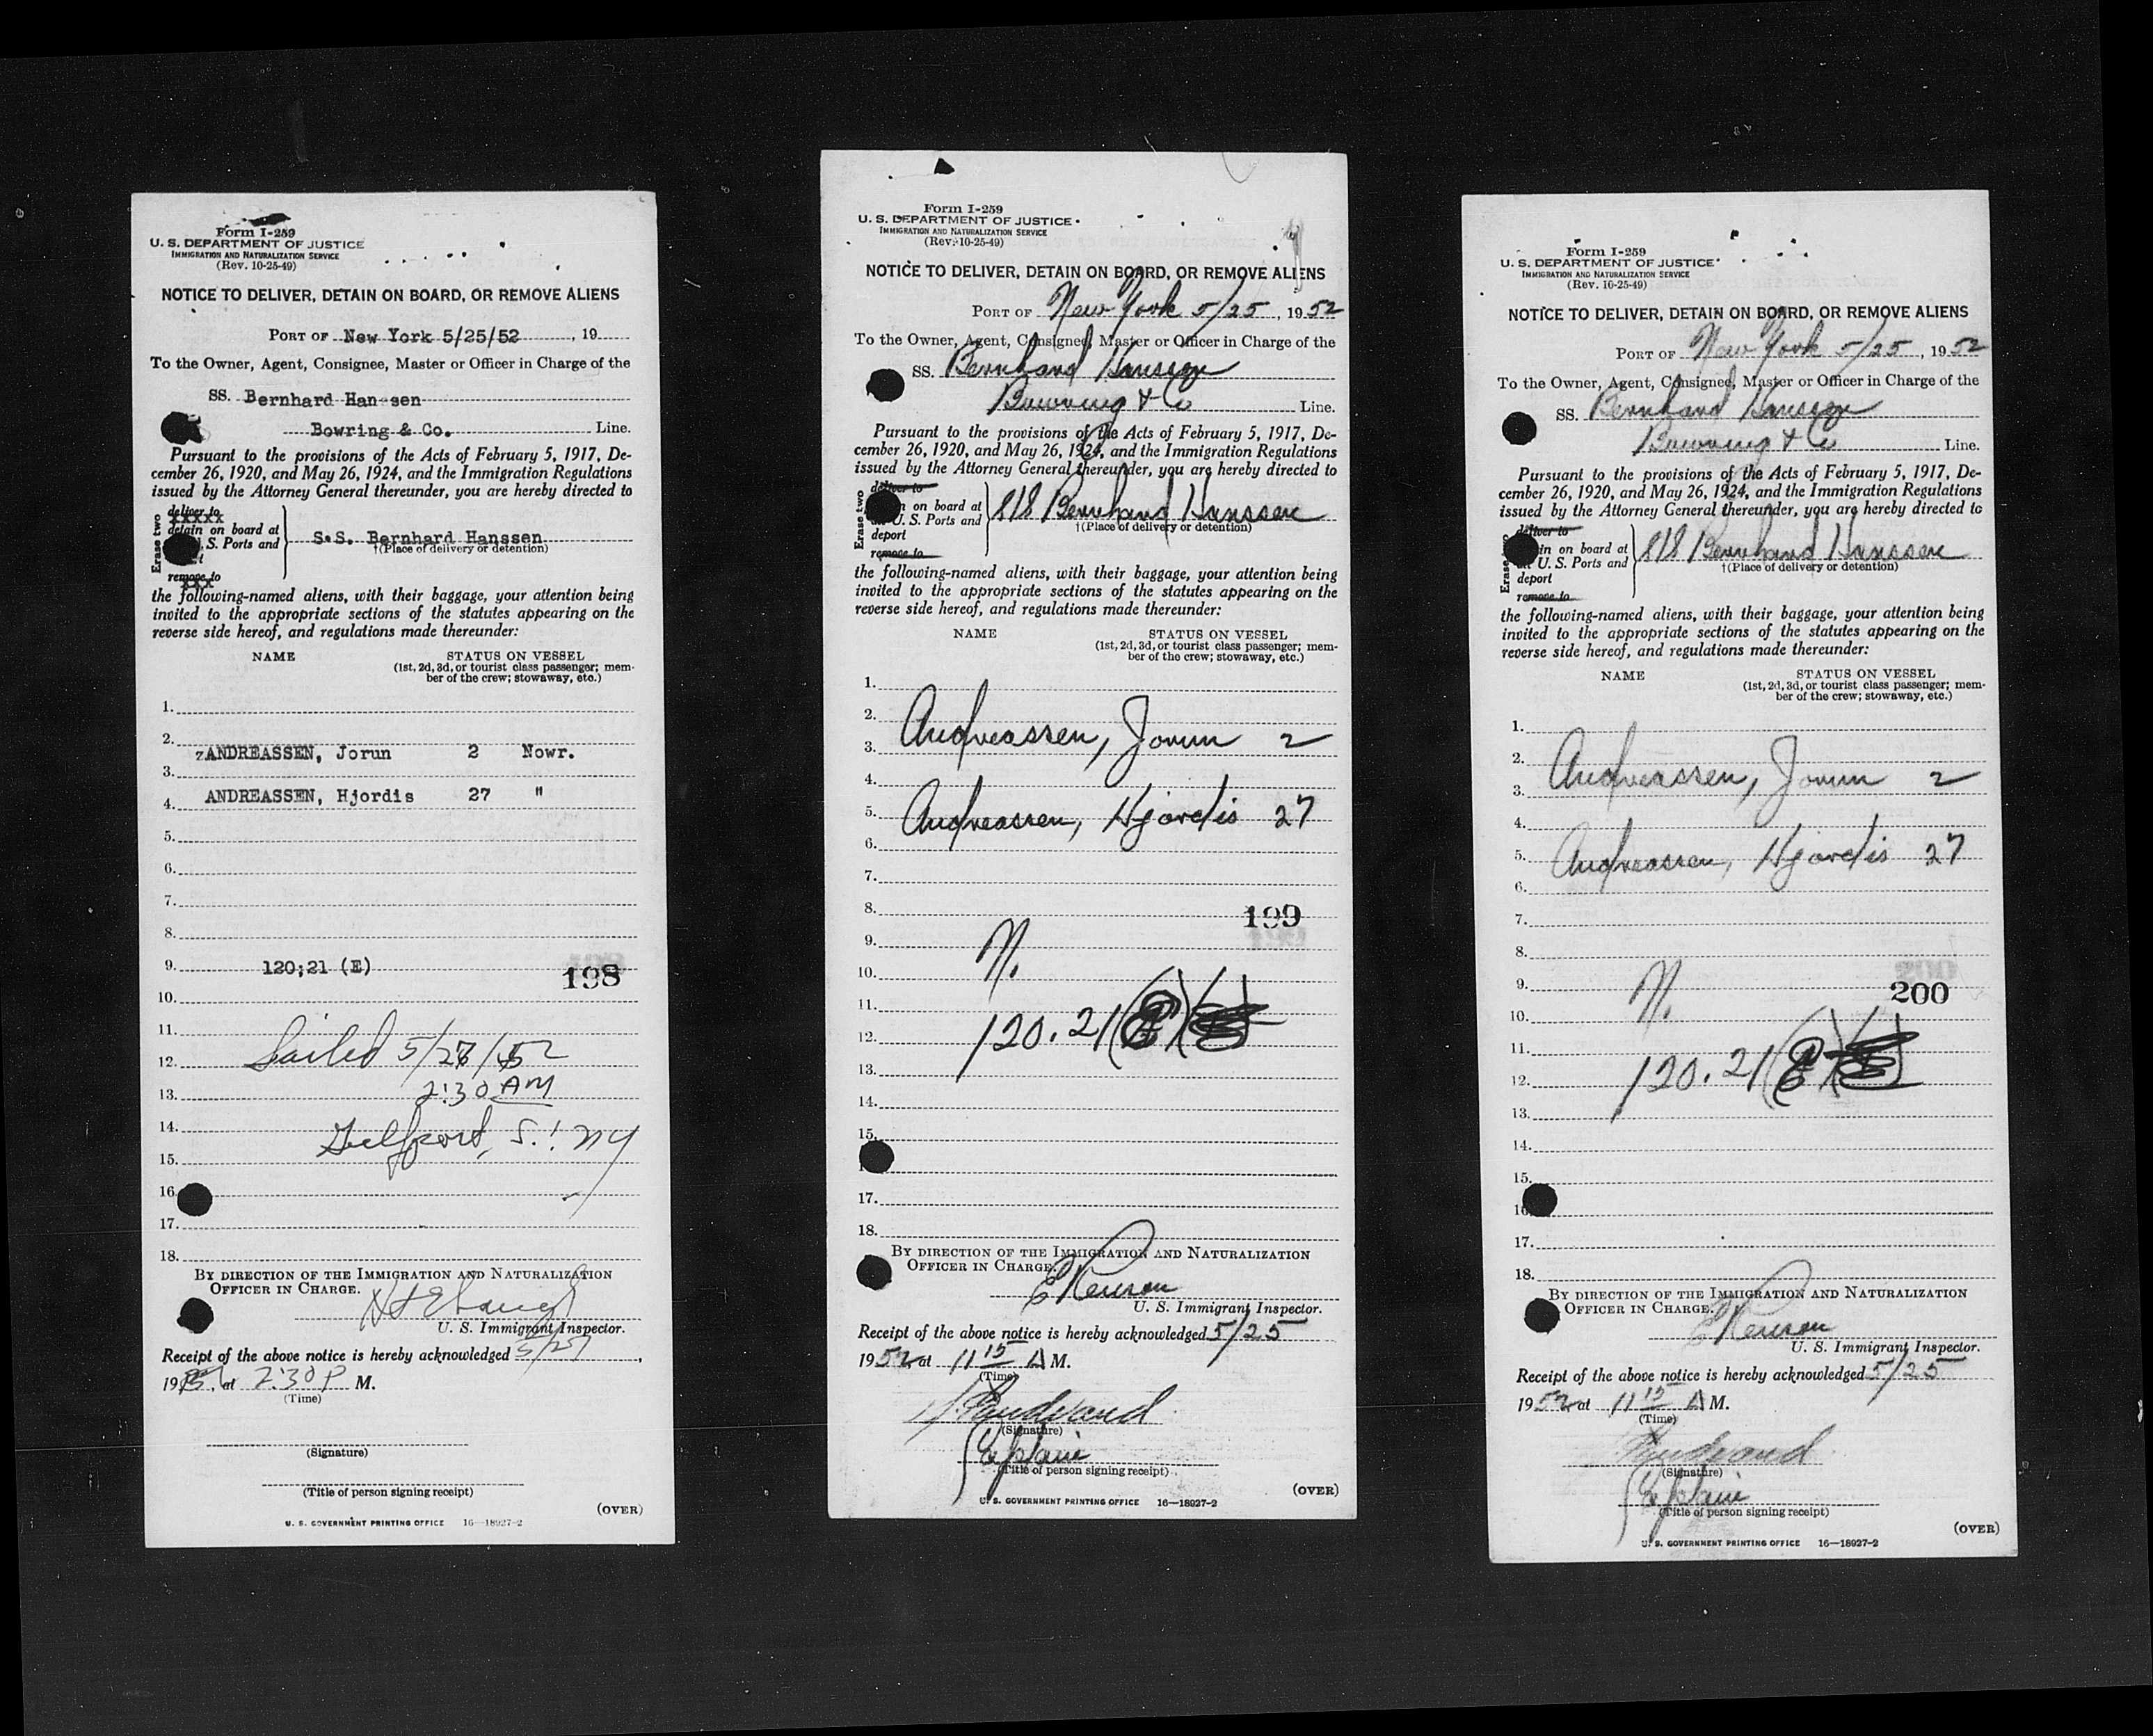 Form I-259
U. S. DEPARTMENT OF JUSTICE
IMMIGRATION AND NATURALIZATION SERVICE
(Rev. 10-25-49)
NOTICE TO DELIVER, DETAIN ON BOARD, OR REMOVE ALIENS
PORT OF New York 5/25/52, 19
To the Owner, Agent, Consignee, Master or Officer in Charge of the
SS. Bernhard Han-sen
Bowring & Co. Line.
Pursuant to the provisions of the Acts of February 5, 1917, De-
cember 26, 1920, and May 26, 1924, and the Immigration Regulations
issued by the Attorney General thereunder, you are hereby directed to
Erase two
deliver to
xxxxx
detain on board at
S. Ports and
S.S. Bernhard Hanssen
†(Place of delivery or detention)
remove to
xxx
the following-named aliens, with their baggage, your attention being
invited to the appropriate sections of the statutes appearing on the
reverse side hereof, and regulations made thereunder:
NAME STATUS ON VESSEL
(1st, 2d, 3d, or tourist class passenger; mem-
ber of the crew; stowaway, etc.)
1.
2.
zANDREASSEN, Jorun 2 Nowr.
3.
4. ANDREASSEN, Hjordis 27 "
5.
6.
7.
8.
9. 120;21 (E)
198
10.
11.
12. Sailed 5/27/52
13. 2:30 AM
14. Gulfport, S.I. NY
15.
16.
17.
18.
BY DIRECTION OF THE IMMIGRATION AND NATURALIZATION
OFFICER IN CHARGE.
U. S. Immigrant Inspector.
Receipt of the above notice is hereby acknowledged 5/27,
1952, at 2:30 P M.
(Time)
(Signature)
(Title of person signing receipt)
(OVER)
U. S. GOVERNMENT PRINTING OFFICE 16—18927-2
Form I-259
U. S. DEPARTMENT OF JUSTICE
IMMIGRATION AND NATURALIZATION SERVICE
(Rev. 10-25-49)
NOTICE TO DELIVER, DETAIN ON BOARD, OR REMOVE ALIENS
PORT OF New York 5/25, 1952
To the Owner, Agent, Consignee, Master or Officer in Charge of the
SS. Bernhard Hanssen
Bowring & Co Line.
Pursuant to the provisions of the Acts of February 5, 1917, De-
cember 26, 1920, and May 26, 1924, and the Immigration Regulations
issued by the Attorney General thereunder, you are hereby directed to
Erase two
deliver to
on board at
U. S. Ports and
deport
remove to
S/S Bernhard Hanssen
†(Place of delivery or detention)
the following-named aliens, with their baggage, your attention being
invited to the appropriate sections of the statutes appearing on the
reverse side hereof, and regulations made thereunder:
NAME STATUS ON VESSEL
(1st, 2d, 3d, or tourist class passenger; mem-
ber of the crew; stowaway, etc.)
1.
2.
3. Andreassen, Jorun 2
4.
5. Andreassen, Hjordis 27
6.
7.
8. 199
9. N.
10.
11.
12. 120.21(E)
13.
14.
15.
17.
18.
BY DIRECTION OF THE IMMIGRATION AND NATURALIZATION
OFFICER IN CHARGE.
U. S. Immigrant Inspector.
Receipt of the above notice is hereby acknowledged 5/25
1952 at 11 15 A M.
(Time)
(Signature)
Captain
(Title of person signing receipt)
(OVER)
U. S. GOVERNMENT PRINTING OFFICE 16—18927-2
Form I-259
U. S. DEPARTMENT OF JUSTICE
IMMIGRATION AND NATURALIZATION SERVICE
(Rev. 10-25-49)
NOTICE TO DELIVER, DETAIN ON BOARD, OR REMOVE ALIENS
PORT OF New York 5/25, 1952
To the Owner, Agent, Consignee, Master or Officer in Charge of the
SS. Bernhard Hanssen
Bowring & Co Line.
Pursuant to the provisions of the Acts of February 5, 1917, De-
cember 26, 1920, and May 26, 1924, and the Immigration Regulations
issued by the Attorney General thereunder, you are hereby directed to
Erase
deliver to
in on board at
U. S. Ports and
deport
remove to
S/S Bernhard Hanssen
†(Place of delivery or detention)
the following-named aliens, with their baggage, your attention being
invited to the appropriate sections of the statutes appearing on the
reverse side hereof, and regulations made thereunder:
NAME STATUS ON VESSEL
(1st, 2d, 3d, or tourist class passenger; mem-
ber of the crew; stowaway, etc.)
1.
2.
3. Andreassen, Jorun 2
4.
5. Andreassen, Hjordis 27
6.
7.
8.
9. N. 200
10.
11.
12. 120.21(E)
13.
14.
15.
16.
17.
18.
BY DIRECTION OF THE IMMIGRATION AND NATURALIZATION
OFFICER IN CHARGE.
U. S. Immigrant Inspector.
Receipt of the above notice is hereby acknowledged 5/25
1952 at 11 15 A M.
(Time)
(Signature)
Captain
(Title of person signing receipt)
(OVER)
U. S. GOVERNMENT PRINTING OFFICE 16—18927-2